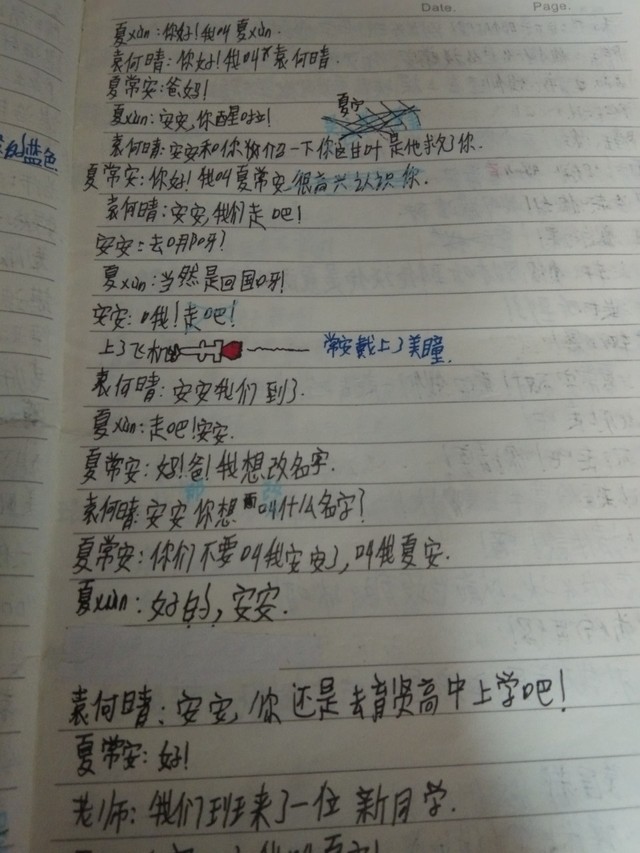 Date. Page.
夏xùn:你好!我叫夏xùn.
袁何晴:你好!我叫袁何晴.
夏常安:爸妈!
夏xùn:安安,你醒啦! 夏安
袁何晴:安安和你介绍一下你 是他救了你.
夏常安:你好!我叫夏常安 很高兴认识你.
袁何晴:安安,我们走吧!
安安:去哪呀?
夏xùn:当然是回国呀!
安安:哦!走吧!
上了飞机 常安戴上了美瞳.
袁何晴:安安我们到了.
夏xùn:走吧!安安.
夏常安:好!爸!我想改名字.
袁何晴:安安你想叫什么名字?
夏常安:你们不要叫我安安了,叫我夏安.
夏xùn:好的,安安.
袁何晴:安安,你还是去育贤高中上学吧!
夏常安:好!
老师:我们班来了一位新同学.
蓝色